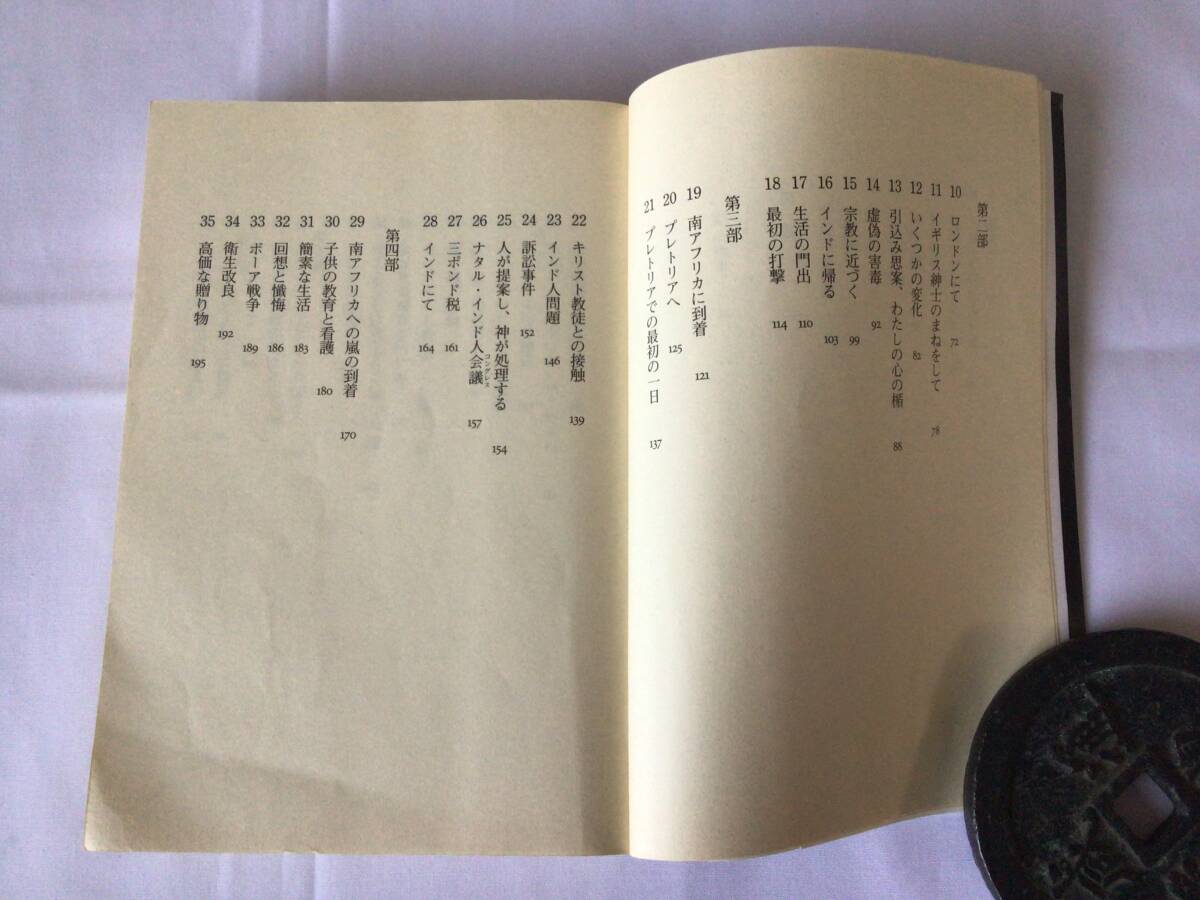 第二部
10 ロンドンにて 72
11 イギリス紳士のまねをして 78
12 いくつかの変化 82
13 引込み思案、わたしの心の楯 88
14 虚偽の害毒 92
15 宗教に近づく 99
16 インドに帰る 103
17 生活の門出 110
18 最初の打撃 114
第三部
19 南アフリカに到着 121
20 プレトリアへ 125
21 プレトリアでの最初の一日 137
22 キリスト教徒との接触 139
23 インド人問題 146
24 訴訟事件 152
25 人が提案し、神が処理する 154
26 ナタル・インド人会議 コングレス 157
27 三ポンド税 161
28 インドにて 164
第四部
29 南アフリカへの嵐の到着 170
30 子供の教育と看護 180
31 簡素な生活 183
32 回想と懺悔 186
33 ボーア戦争 189
34 衛生改良 192
35 高価な贈り物 195